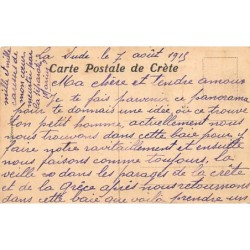 La Sude le 7 août 1915
Carte Postale de Crète
Ma chère et tendre amour
Je te fais parvenir ce panorama
pour te donner une idée, où ce trouve
ton petit homme, actuellement nous
nous trouvons dans cette baie pour
faire notre ravitaillement et ensuite
nous faisons comme toujours, la
veille dans les parages de la crète
et de la Grèce après nous retournons
dans cette baie que voilà prendre un
mille et mille
caresses de
mon cœur